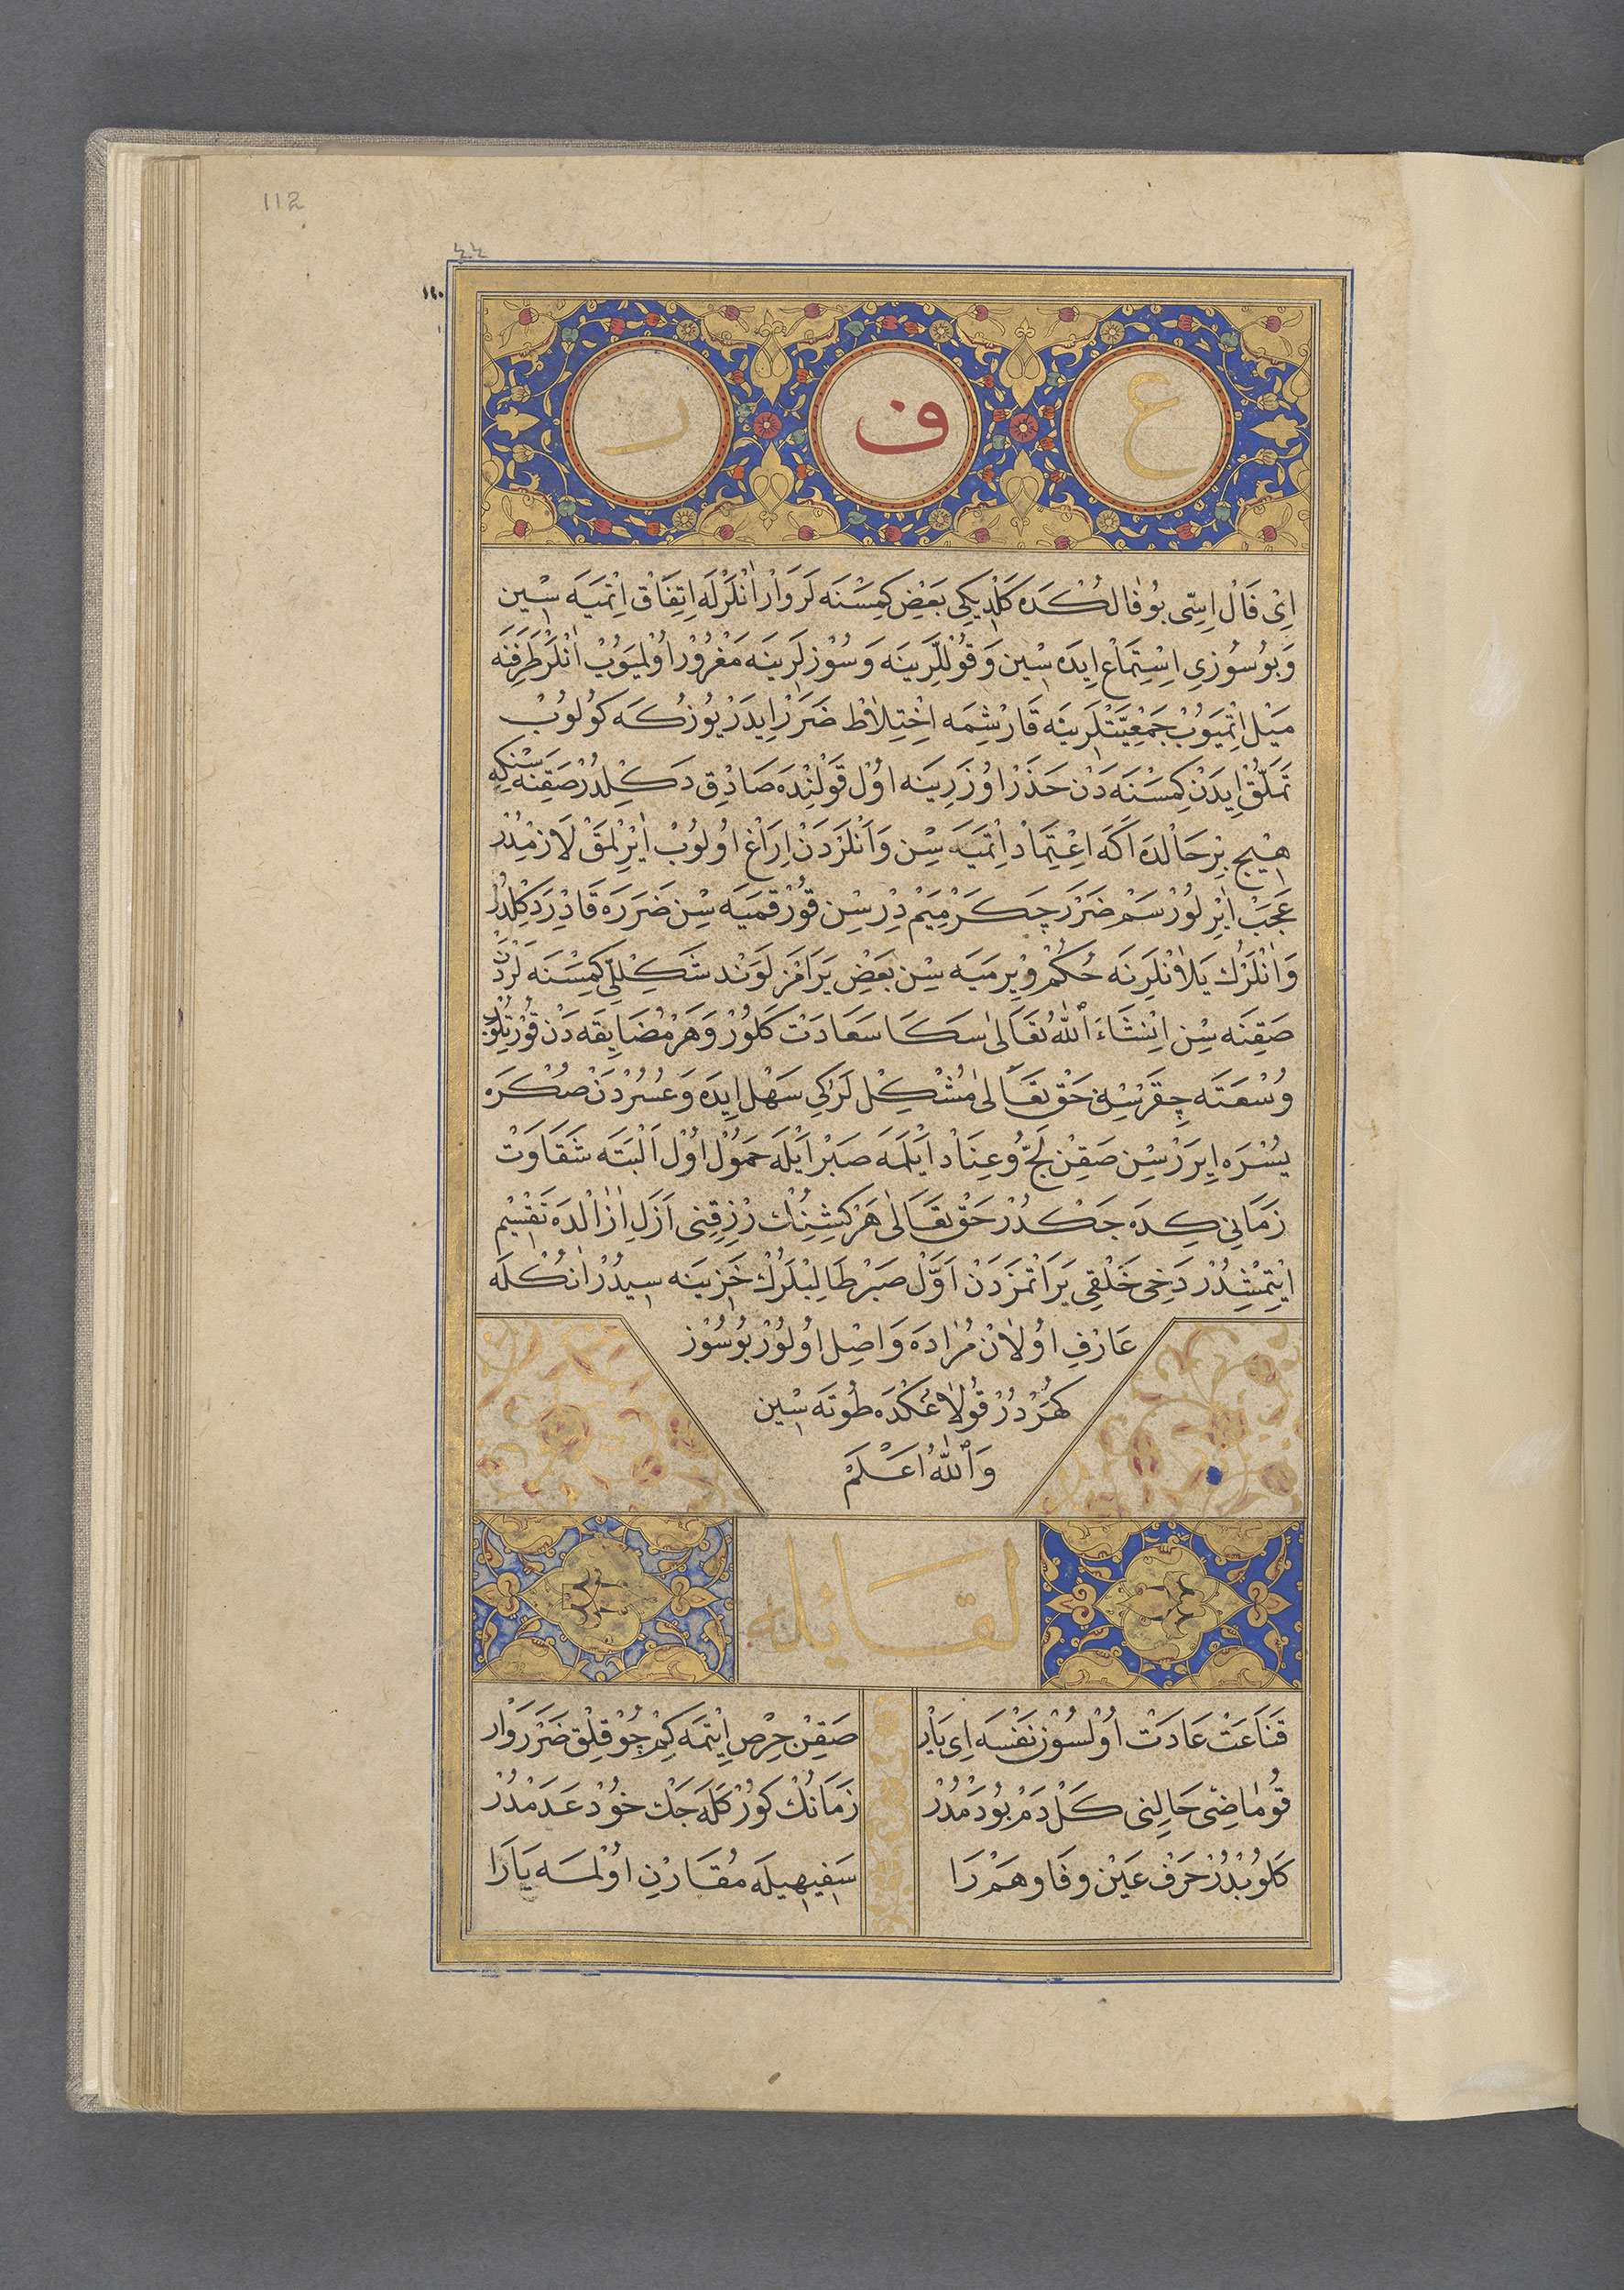 112
٤٤
١١٠
ع ف ر
اِیْ فَالْ اِسّی بُوفَالُكْدَه كَلْدِیكِی بَعْضِ كِمْسَنَه لَرْ وَارْ اَنْلَرْلَه اِتِّفَاقْ اِتْمَیَه سْین
وَ بُو سُوزِی اِسْتِمَاعْ اِیدَه سْین وَ قُوْللَّرِینَه وَ سُوْزلَرِینَه مَغْرُوْر اُوْلمَیُوبْ اَنْلَرْ طَرَفِنَه
مَیْل اِتْمَیُوبْ جَمْعِیَّتْلَرِینَه قَارْشِمَه اِخْتِلَاطْ ضَرَرْ اِیدَرْ یُوزُكَه كُولُوبْ
تَمَلُّقْ اِیدَنْ كِمْسَنَه دَنْ حَذَرْ اُوزَرِینَه اُوْل قَوْلِنْدَه صَادِقْ دَكِلْدُرْ صَقِنَه سْنكِه
هْیچ بِرْحَالْدَه اَكَا اِعْتِمَادْ اِتْمَیَه سْن وَ اَنْلَرْدَنْ اِرَاغْ اُولُوبْ اَیْرِلْمَقْ لَازِمْدُرْ
عَجَبْ اَیْرِلُورْسَمْ ضَرَرْ چَكَرْمِیَمْ دِرْسِن قُوْرْقمَیَه سْن ضَرَرَه قَادِرْ دَكِلْدُرْ
وَ اَنْلَرُكْ یَلَانْلَرِنَه حُكْمْ وِیرمَیَه سْن بَعْضِ یَرَامَزْ لَوَنْد شَكِلْلِی كِمْسَنَه لَرْدَنْ
صَقِنَه سْن اِنْشَاءَ ٱللّٰهُ تَعَالٰی سَكَا سَعَادَتْ كَلُورْ وَ هَرْ مُضَایِقَه دَنْ قُوْرْتُلُوبْ
وُسْعَتَه چِقَرْسْن حَقْ تَعَالٰی مُشْكِلْ لَرُكِی سَهْل اِیدَه وَ عُسُرْدَنْ صُكْرَه
یُسْرَه اِیرَرْسْن صَقِنْ لَجّ وُ عِنَادْ اَیْلَمَه صَبْرْ اَیْلَه حَمُولْ اُوْل اَلْبَتَّه شَقَاوَتْ
زَمَانِی كِدَه جَكْدُرْ حَقْ تَعَالٰی هَرْ كِشِنِكْ رِزْقِنی اَزَلِ اٰزَالْدَه تَقْسْیم
اِیْتِمْشِدُرْ دَخِی خَلْقِی یَرَاتْمَزْدَنْ اَوَّلْ صَبْرْ طَالِبْلَرُكْ خَزِینَه سِیدُرْ اَنُكْلَه
عَارِفْ اُولَانْ مُرَادَه وَاصِل اُولُورْ بُو سُوْز
كُهَرْدُرْ قُولَاغُكْدَه طُوتَه سْین
وَٱللّٰهُ اَعْلَمْ
لقائله
قَنَاعَتْ عَادَتْ اُوْلسُوْن نَفْسَه اِی یَارْ
صَقِنْ حِرْص اِیْتمَه كِمْ چُوْقلِقْ ضَرَرْوَارْ
قُو مَاضِی حَالِنی كَلْ دَمْ بُو دَمْدُرْ
زَمَانُكْ كُورْ كَلَه جَكْ خُودْ عَدَمْدُرْ
كَلُوبْدُرْ حَرْفِ عَیْن و فَا و هَمْ رَا
سَفِیهِیلَه مُقَارِنْ اُوْلمَه یَارَا